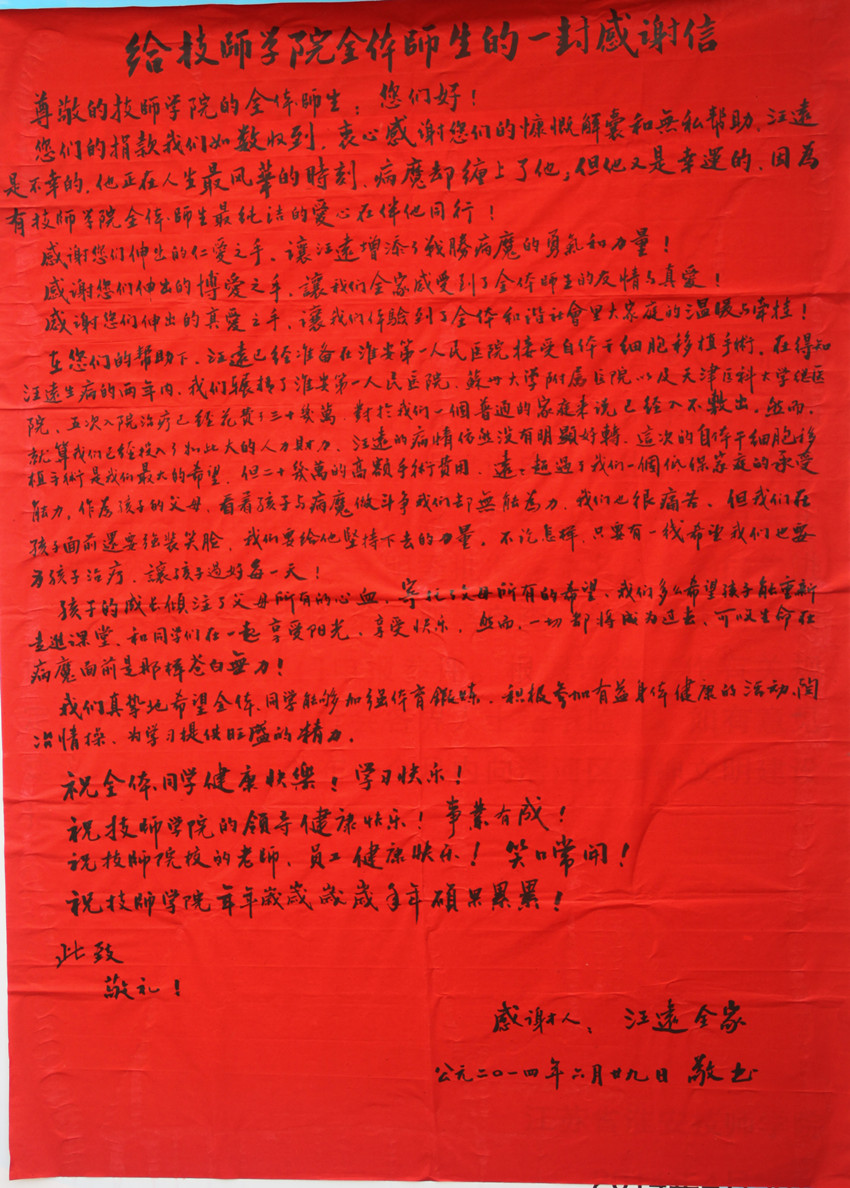 给技師学院全体師生的一封感谢信
尊敬的技師学院的全体师生：您们好！
您们的捐款我们如数收到，衷心感谢您们的慷慨解囊和無私幫助，汪遠
是不幸的，他正在人生最风華的時刻，病魔却缠上了他；但他又是幸運的，因為
有技師学院全体師生最纯洁的爱心在伴他同行！
感谢您们伸出的仁爱之手，讓汪遠增添了戰勝病魔的勇氣和力量！
感谢您们伸出的博爱之手，讓我们全家感受到了全体师生的友情与真爱！
感谢您们伸出的真爱之手，讓我们体验到了全体和谐社會里大家庭的温暖与牵挂！
在您们的帮助下，汪遠已经准备在淮安第一人民医院接受自体干细胞移植手術，在得知
汪遠生病的两年内，我们辗转了淮安第一人民医院，蘇州大学附属医院以及天津医科大学总医
院，五次入院治疗已经花費了三十幾萬，對於我们一個普通的家庭来说已经入不敷出，然而，
就算我们已经投入了如此大的人力财力，汪遠的病情依然没有明顯好轉，這次的自体干细胞移
植手術是我们最大的希望，但二十幾萬的高额手術費用，遠遠超過了我们一個低保家庭的承受
能力，作為孩子的父母，看着孩子与病魔做斗争我们却無能為力，我们也很痛苦，但我们在
孩子面前還要强装笑脸，我们要给他坚持下去的力量，不论怎样，只要有一线希望我们也要
为孩子治疗，讓孩子過好每一天！
孩子的成長倾注了父母所有的心血，寄托了父母所有的希望，我们多么希望孩子能重新
走進课堂，和同学们在一起享受阳光，享受快乐，然而，一切都将成为過去，可以生命在
病魔面前是那样苍白無力！
我们真挚地希望全体同学能够加强体育鍛煉，积极参加有益身体健康的活动，陶
冶情操，为学习提供旺盛的精力。
祝全体同学健康快樂！学习快乐！
祝技師学院的领导健康快乐！事業有成！
祝技師院校的老师，員工健康快乐！笑口常開！
祝技師学院年年歲歲歲歲年年碩果累累！
此致
敬礼！
感谢人：汪遠全家
公元二〇一四年六月廿九日 敬上